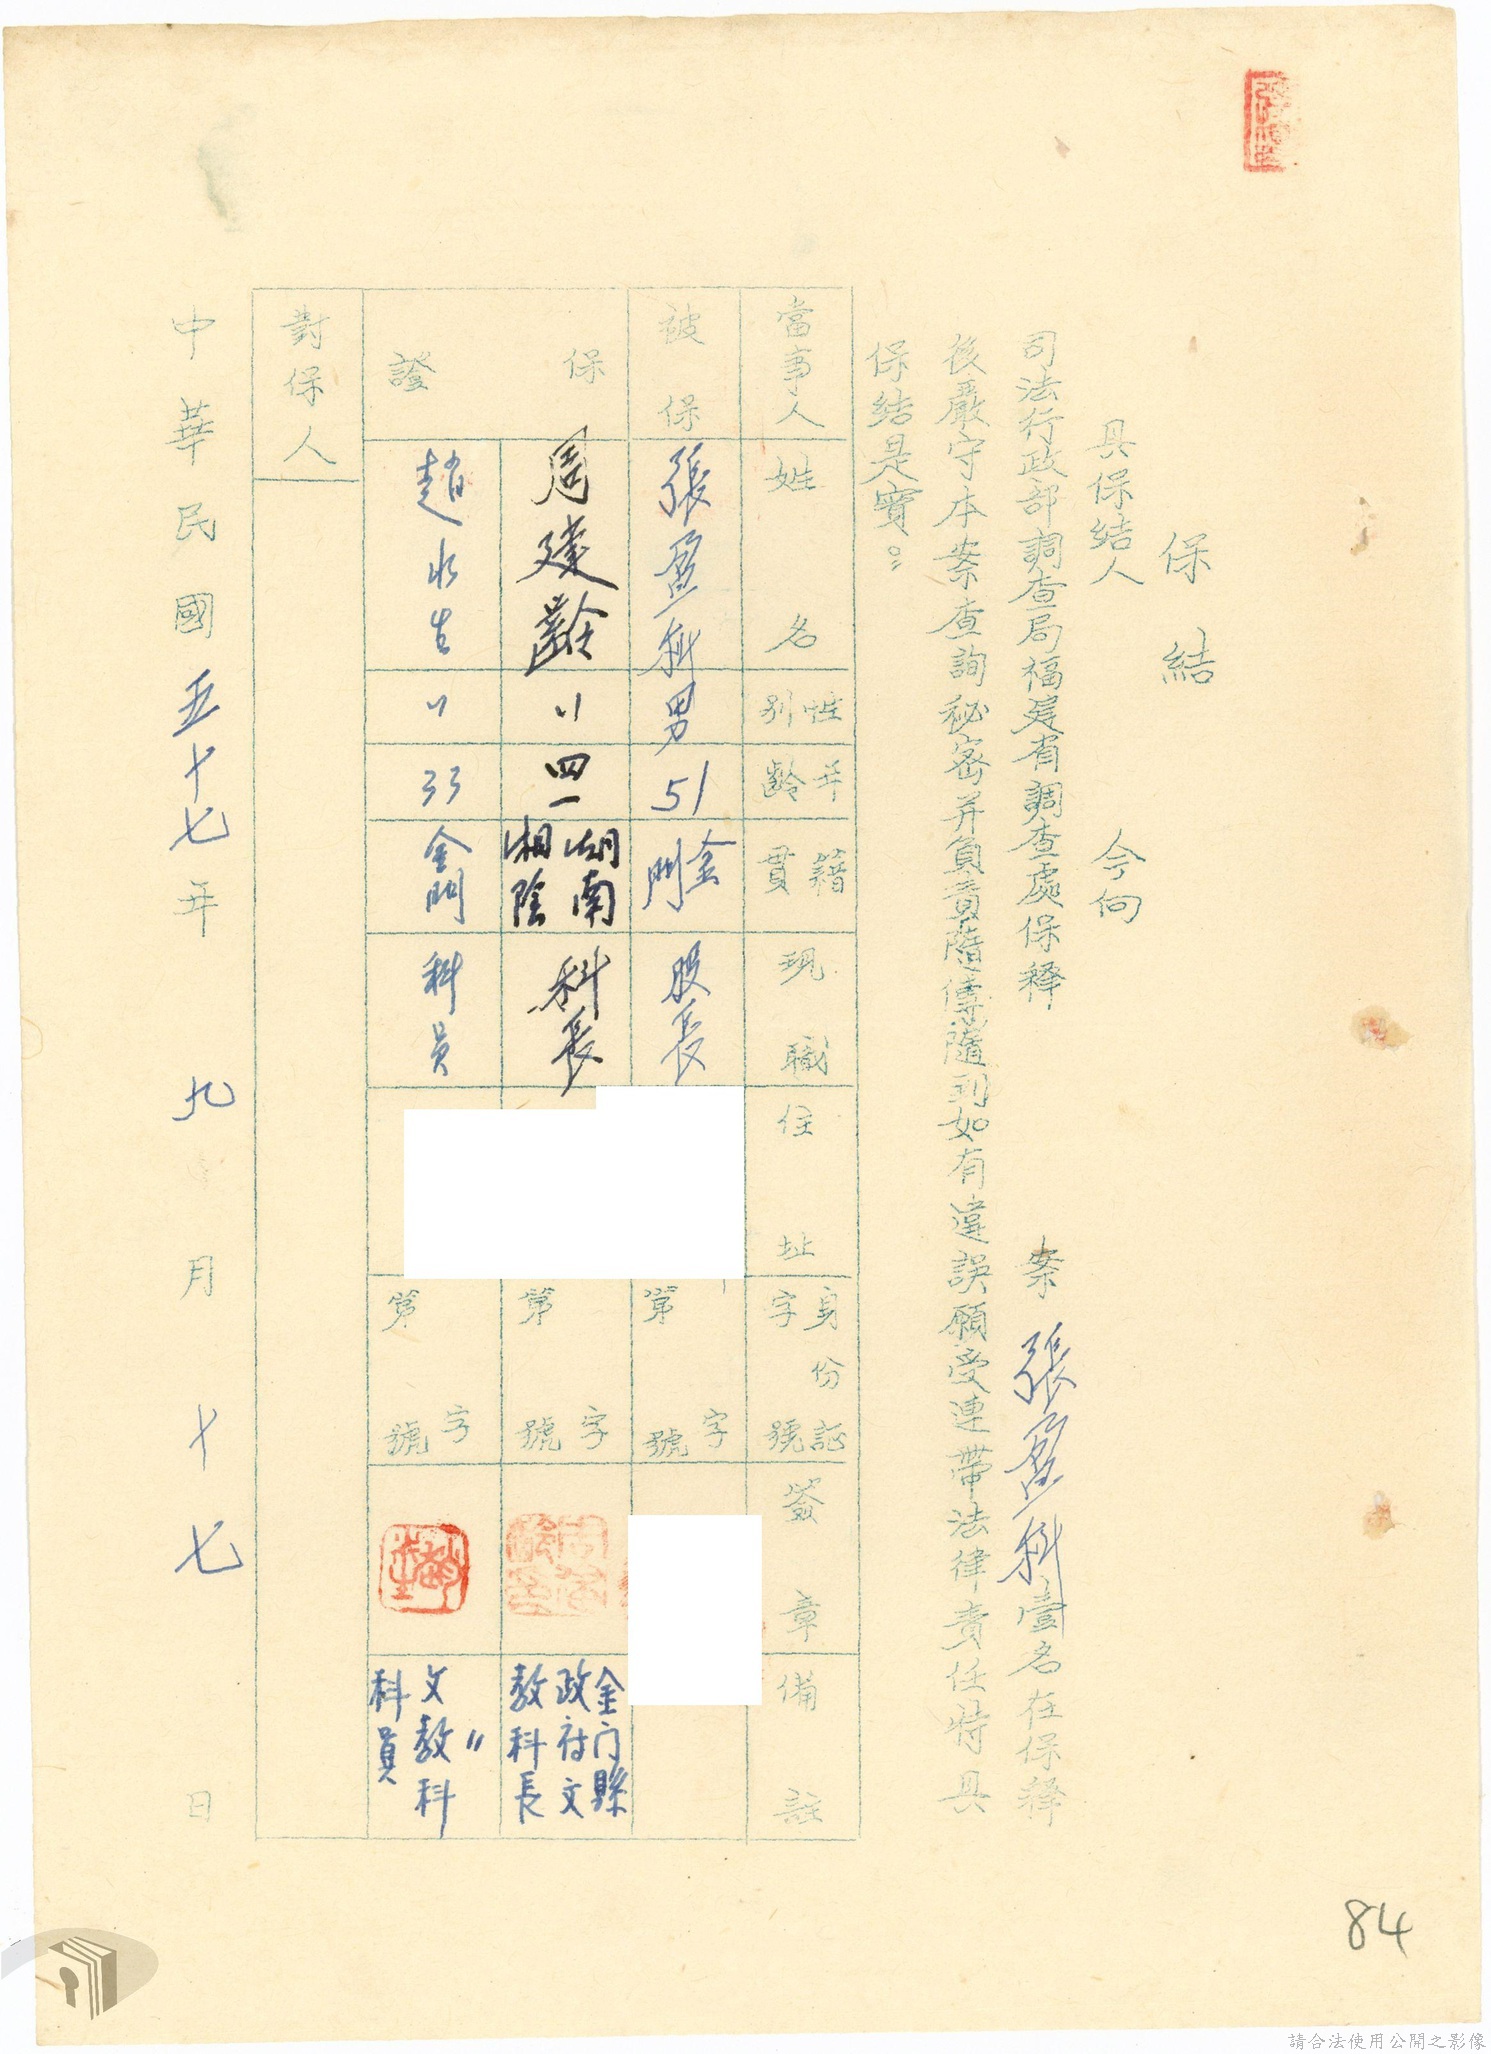 保結
具保結人　今向
司法行政部調查局福建省調查處保释　案張盈科壹名在保释
後嚴守本案查詢秘密并負責隨傳隨到如有違誤願受連帶法律責任特具
保結是實。
當事人　姓名　性別　年齡　籍貫　現職　住址　身份証字號　簽章　備註
被保　張盈科　男　51　金門　股長　第　字　號
保證
周建齡　〃　四一　湖南湘陰　科長　第　字　號　金门縣政府文教科長
趙水生　〃　33　金門　科員　第　字　號　〃文教科科員
對保人
中華民國五十七年九月十七日
84
請合法使用公開之影像